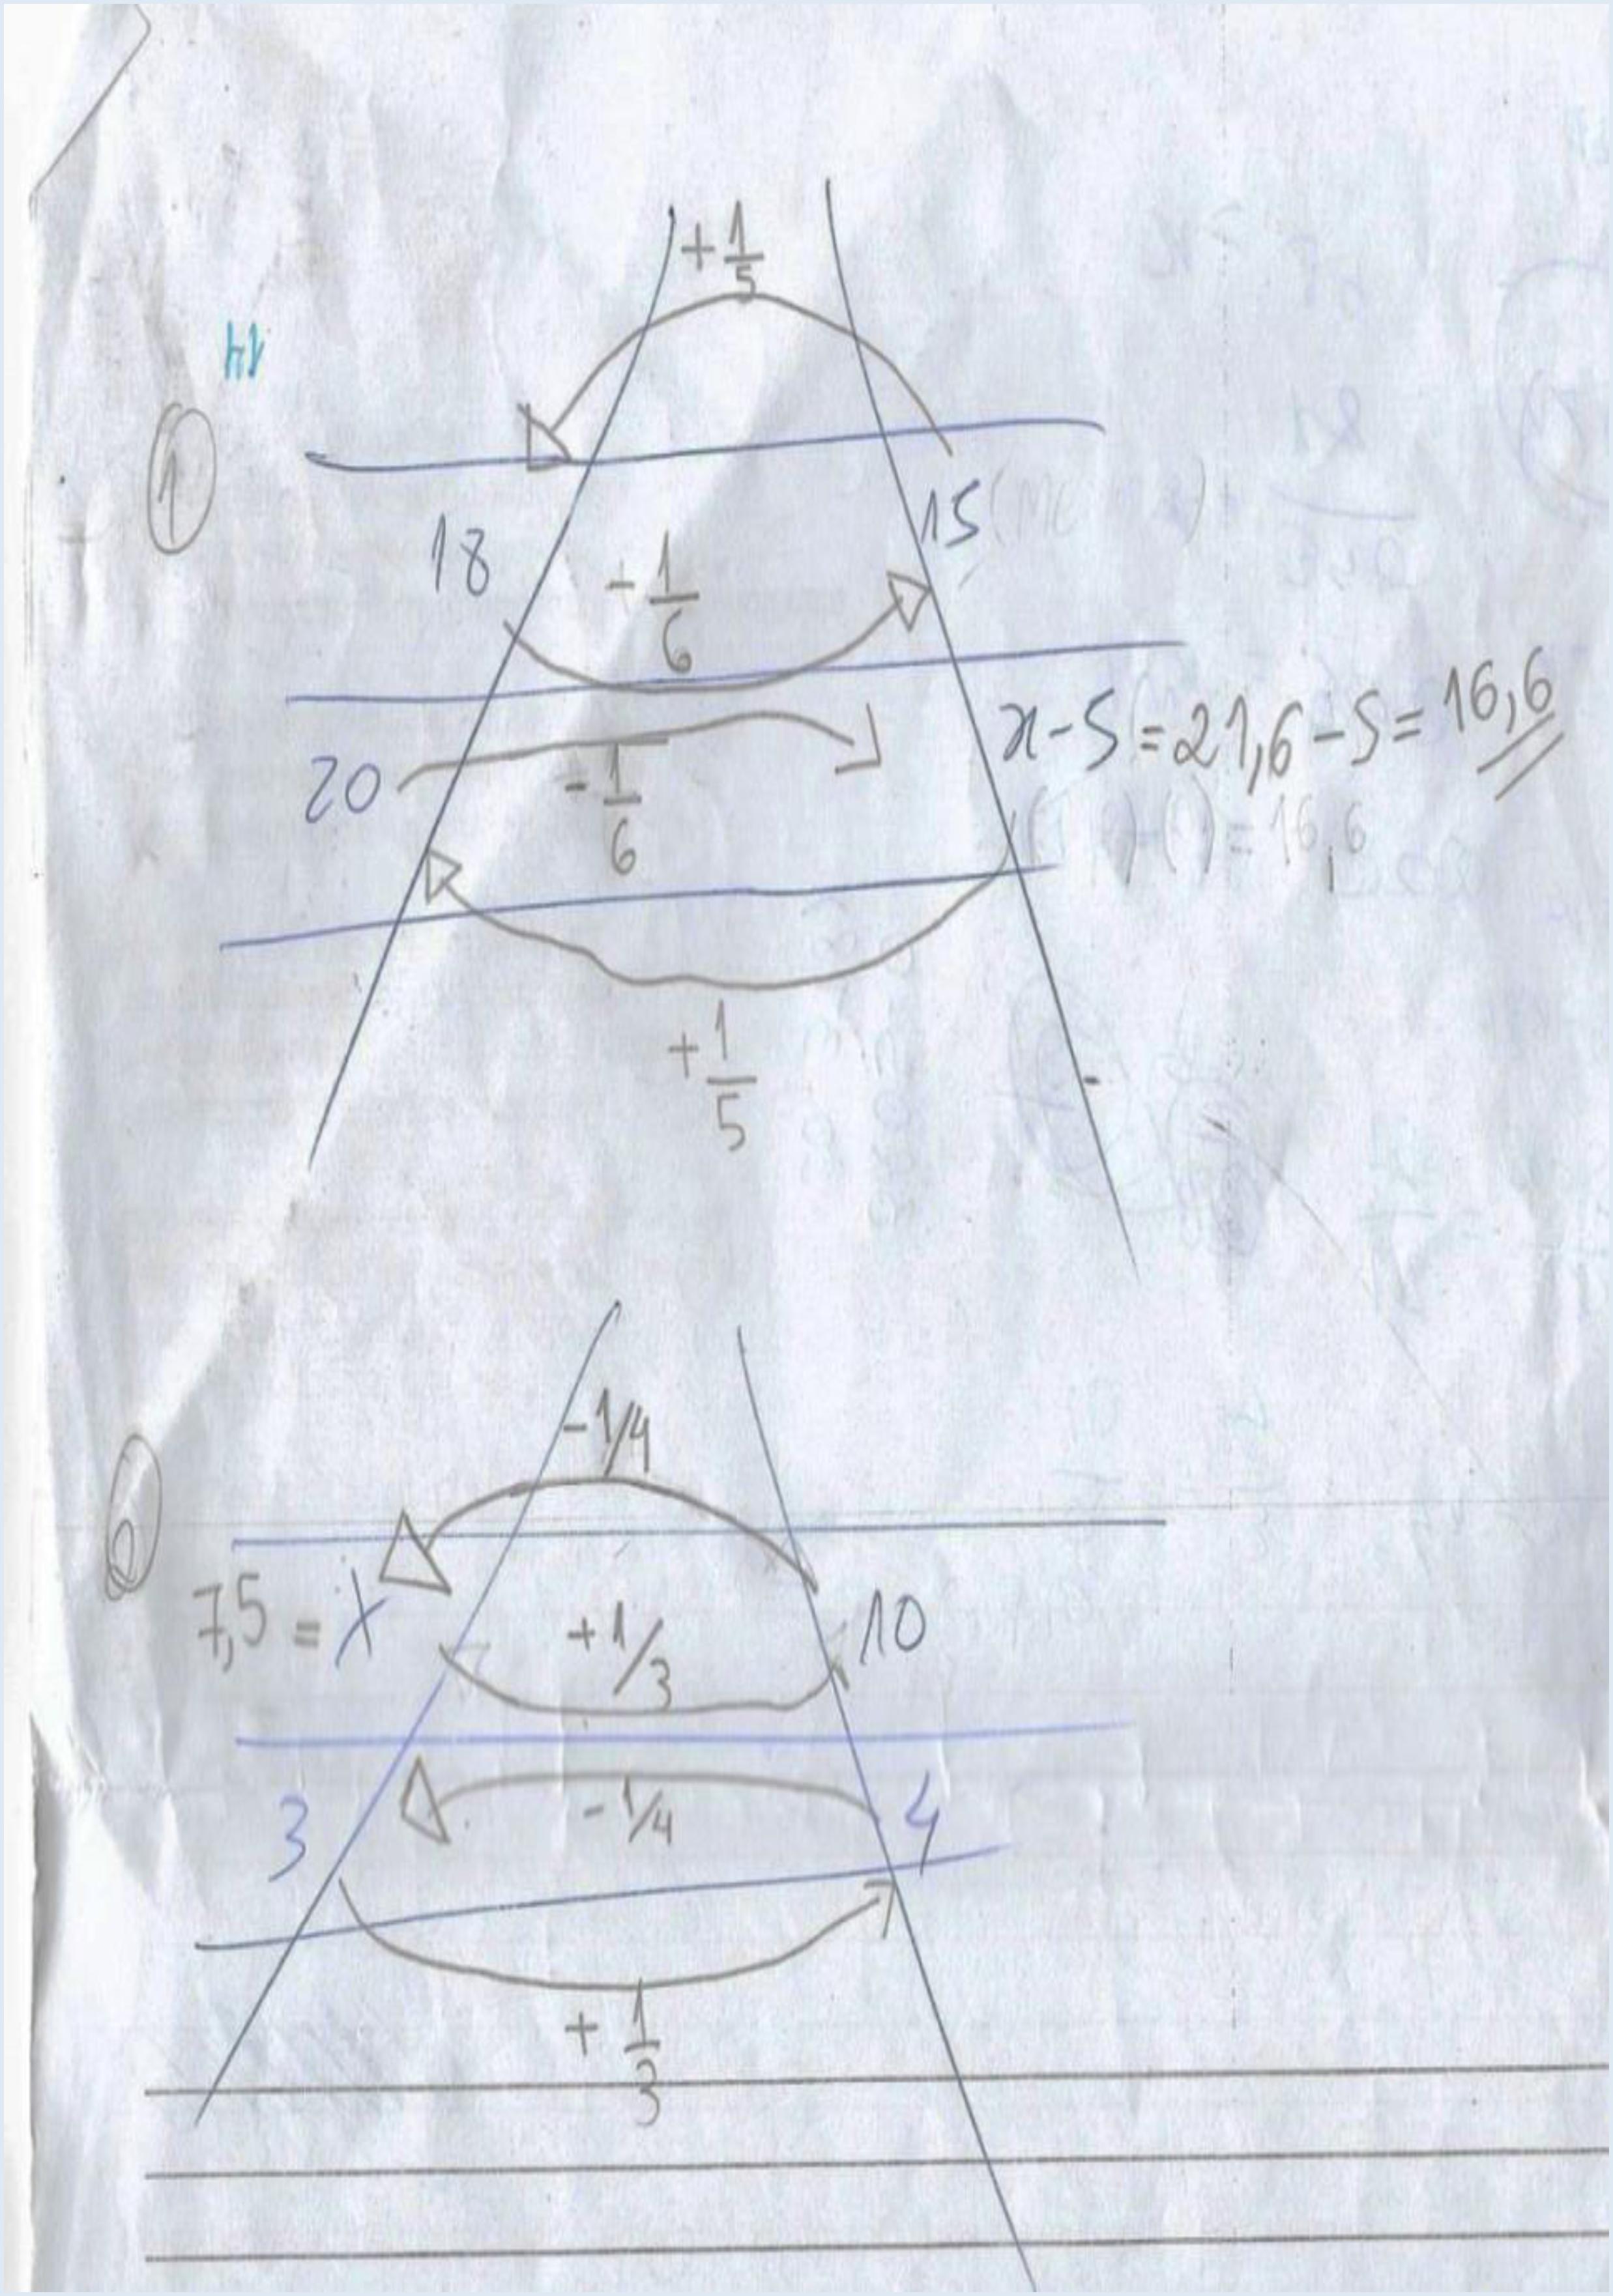 +1/5
14
1
18
15
-1/6
x-5=21,6-5=16,6
20
-1/6
=16,6
+1/5
-1/4
7,5=x
+1/3
10
3
-1/4
4
+1/3